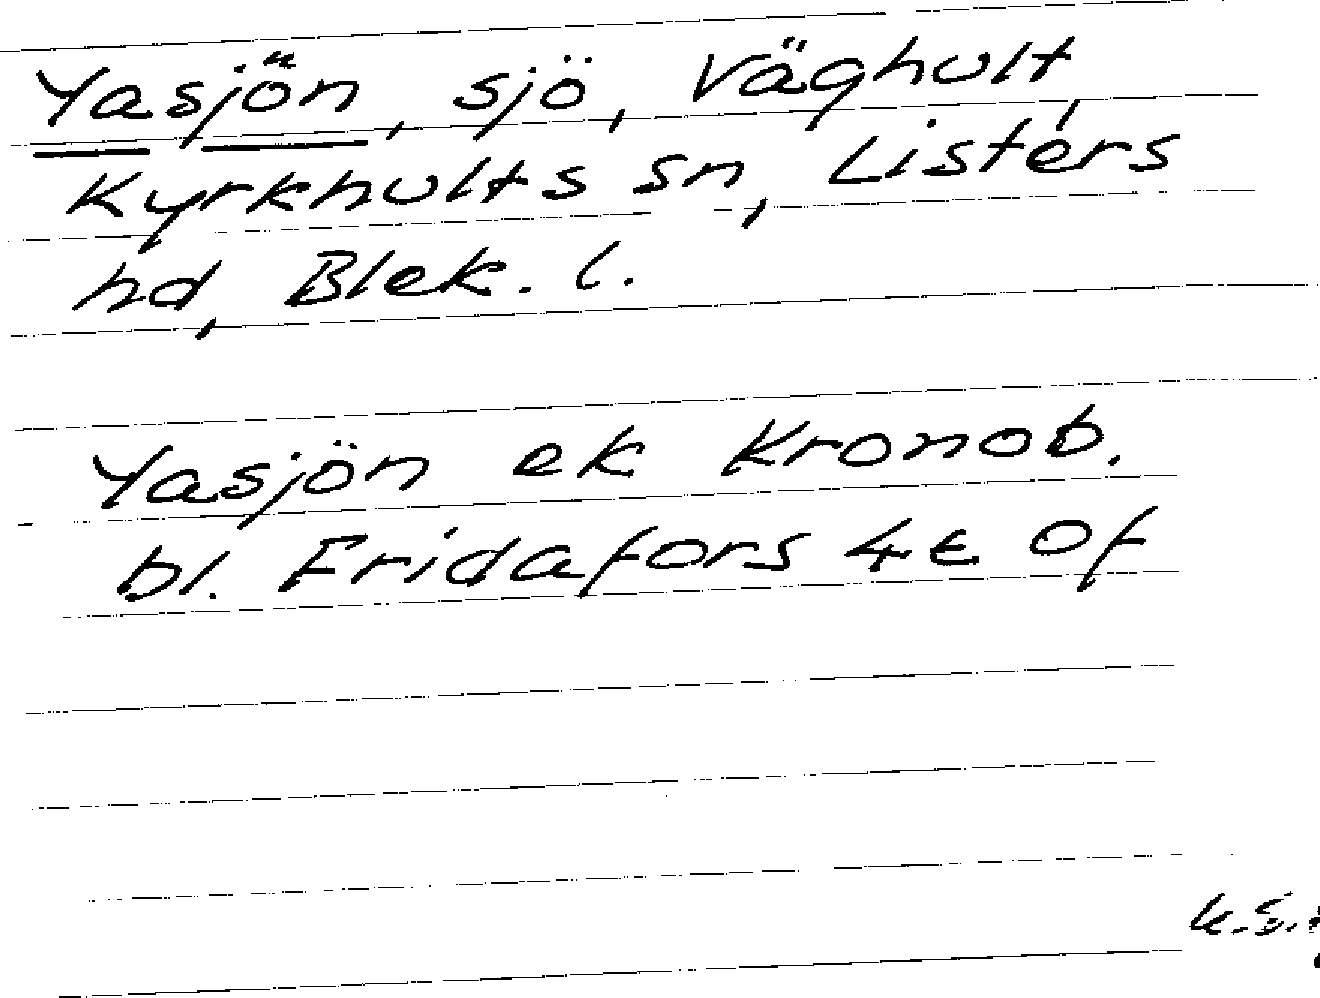 Yasjön, sjö, Väghult,
Kyrkhults sn, Listers
hd, Blek. l.
Yasjön ek Kronob.
bl. Fridafors 4e Of